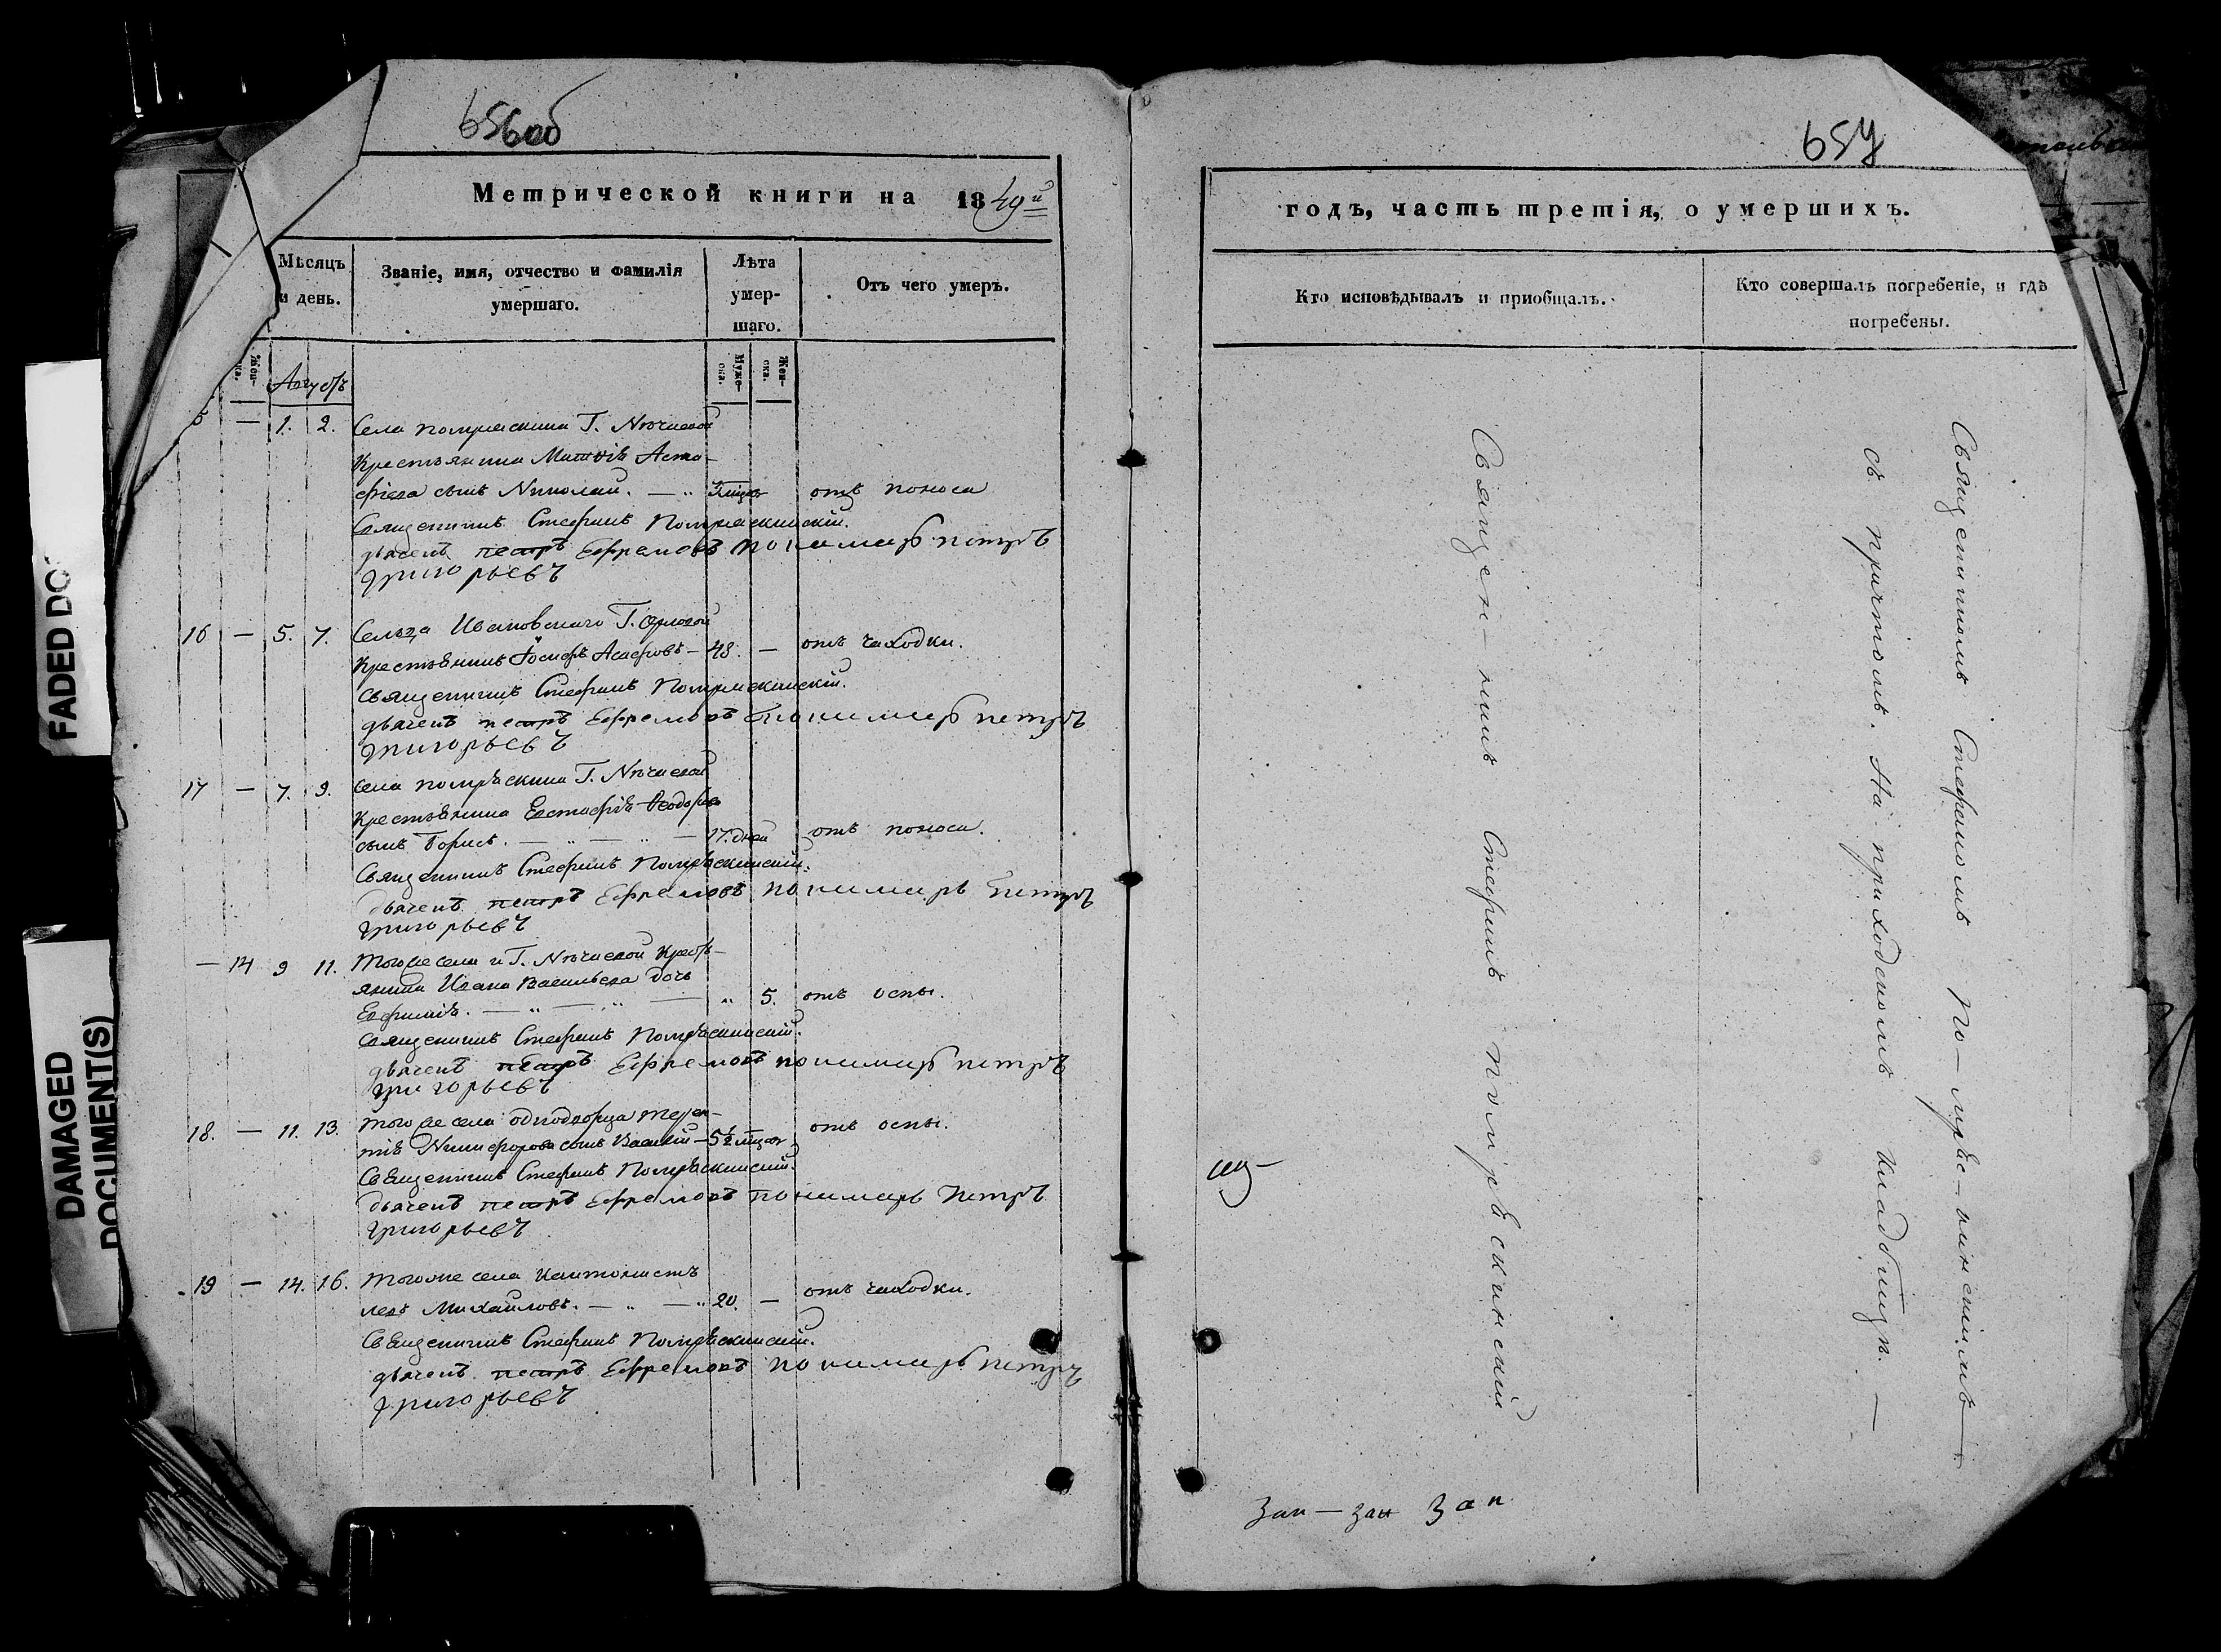 656об
Метрической книги на 1849й
Мѣсяцъ и день.
Званіе, имя, отчество и фамилія умершаго.
Лѣта умер-
шаго.
Отъ чего умеръ.
Жен-
Муже-
ска.
Жен-
ска.
Августъ
— 1. 2. Села Г.
Крестьянина Матвѣя Аста-
фьева сынъ Николай. — " отъ поноса
Священникъ Стефанъ
дьячекъ петръ Ефремовъ пономарь петръ
григорьевъ
16 — 5. 7. Сельца Ивановскаго Г. Орловой
Крестьянинъ Іосифъ — 48. — отъ чахотки.
Священникъ Стефанъ
дьячекъ петръ Ефремовъ пономарь петръ
григорьевъ
17 — 7. 9. Села Г.
Крестьянина Евстафія Ѳеодорова
сынъ Борисъ. — " — " — 17. дней отъ поноса.
Священникъ Стефанъ
дьячекъ петръ Ефремовъ пономарь петръ
григорьевъ
— 14 9 11. Тогоже села и Г. Крест-
янина Ивана Васильева дочь
Евфимія. — " — " — " 5. отъ оспы.
Священникъ Стефанъ
дьячекъ петръ Ефремовъ пономарь петръ
григорьевъ
18. — 11. 13. Тогоже села однодворца Терен-
тія Никифорова сынъ Василій — 5½ мцовъ отъ оспы.
Священникъ Стефанъ
дьячекъ петръ Ефремовъ пономарь петръ
григорьевъ
19 — 14. 16. Тогоже села Кантонистъ
Левъ Михайловъ. — " — " 20. — отъ чахотки.
Священникъ Стефанъ
дьячекъ петръ Ефремовъ пономарь петръ
григорьевъ
657
годъ, часть третія, о умершихъ.
Кто исповѣдывалъ и пріобщалъ.
Кто совершалъ погребеніе, и гдѣ
погребены.
Священ-никъ Стефанъ
Священникомъ Стефаномъ
съ причтомъ. На приходскомъ кладбищѣ. —
Зак — зак Зак
FADED DO
DAMAGED
DOCUMENT(S)